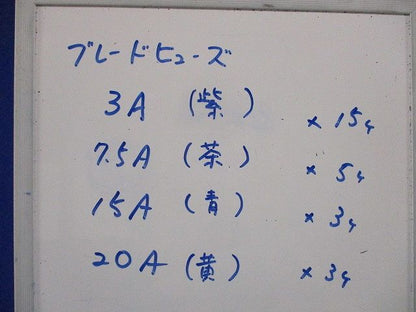 ブレードヒューズ
3A (紫) × 15ヶ
7.5A (茶) × 5ヶ
15A (青) × 3ヶ
20A (黄) × 3ヶ